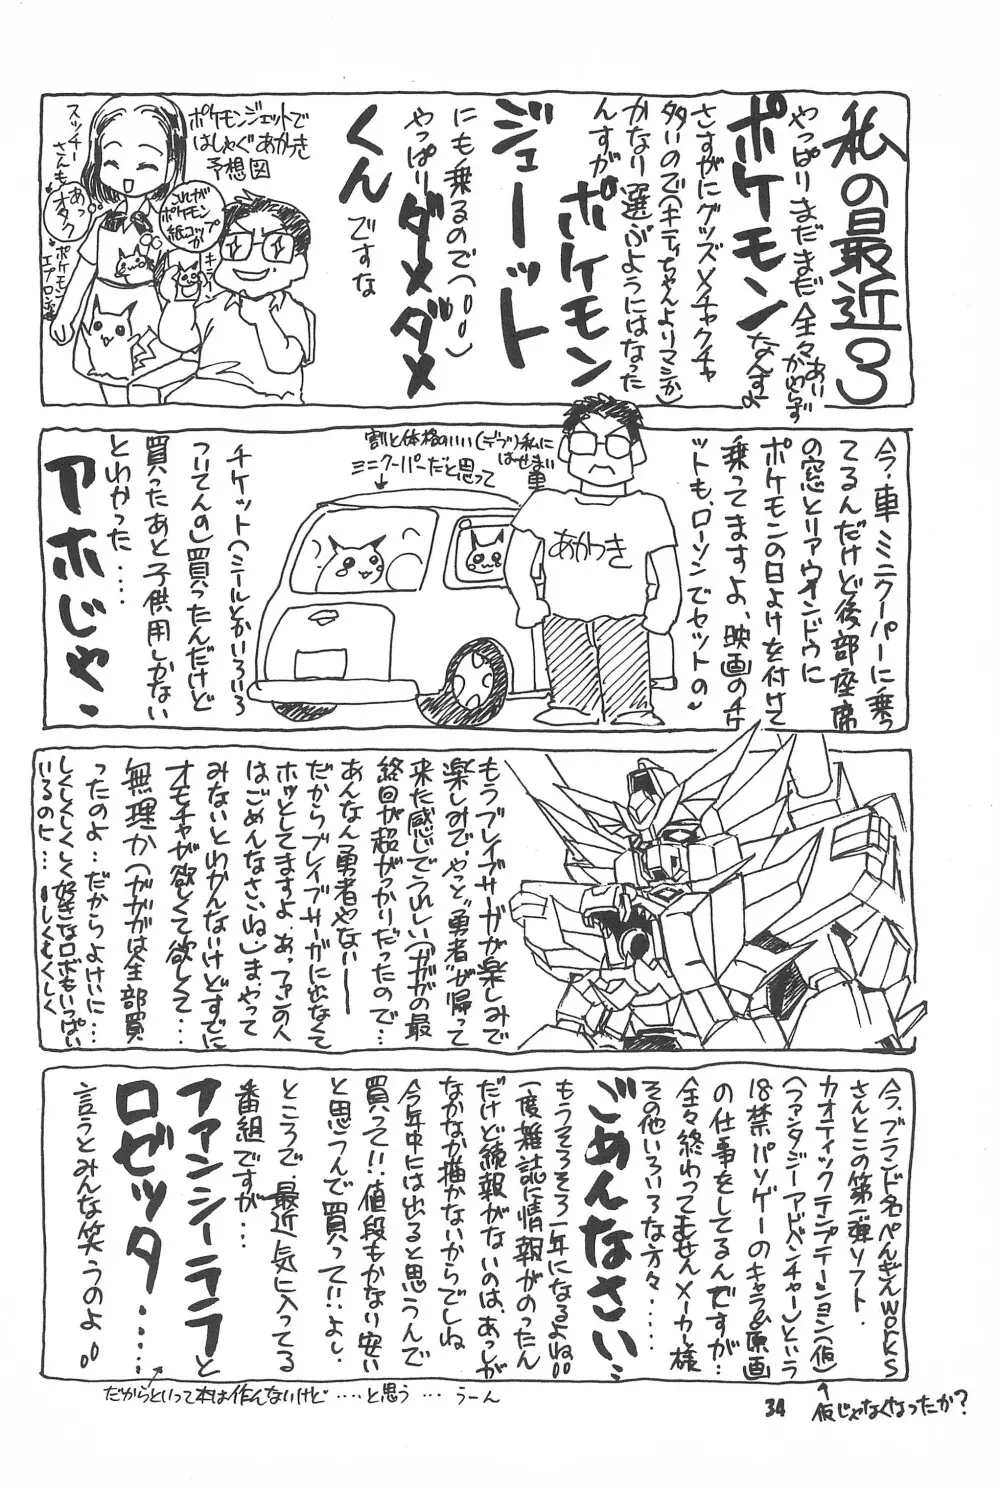 私の最近3
やっぱりまだまだ全々あいかわらず
ポケモンなんすよ
さすがにグッズメチャクチャ
多いので(キティちゃんよりマシか)
かなり選ぶようにはなった
んすが ポケモン
ジェーット
にも乗るので(^^)
やっぱりダメダメ
くんですな
ポケモンジェットで
はしゃぐあかつき
予想図
スッチー
さんも
あっ
オタク
ポケモン
エプロン姿
コレが
ポケモン
紙コップ
かー
キラーン
今、車ミニクーパーに乗っ
てるんだけど後部座席
の窓とリアウインドウに
ポケモンの日よけを付けて
乗ってますよ、映画のチケ
ットも、ローソンでセットの〜
割と体格のいい(デブ)私に
はせまい
車
ミニクーパーだと思って
あかつき
チケット(シールとかいろいろ
ついてんの)買ったんだけど
買ったあと子供用しかない
とわかった‥‥
アホじゃ、
もうブレイブサーガが楽しみで
楽しみで、やっと“勇者”が帰って
来た感じでうれしい(ガガガの最
終回が超がっかりだったので…
あんなん勇者やない――
だからブレイブサーガに出なくて
ホッとしてますよ、あっファンの人
はごめんなさいね)ま、やって
みないとわかんないけどすでに
オモチャが欲しくて欲しくて…
無理か(ガガガは全部買
ったのよ…だからよけいに…
しくしくしく好きなロボもいっぱい
いるのに…しくしくしく
今、ブランド名ぺんぎんworks
さんとこの第一弾ソフト
カオティックテンプテーション(仮)
(ファンタジーアドベンチャー)という
18禁パソゲーのキャラ&原画
の仕事をしてるんですが…
全々終わってませんメーカー様
その他いろいろな方々‥‥
ごめんなさい…
もうそろそろ一年になるよね
一度雑誌に情報がのったん
だけど続報がないのは、あっしが
なかなか描かないからでしね
今年中には出ると思うんで
買って!!値段もかない安い
と思うんで買って!!よし
ところで、最近気に入ってる
番組ですが…
ファンシーララと
ロゼッタ‥‥
言うとみんな笑うのよ
だからといって本は作んないけど‥‥と思う…うーん
34
仮じゃなくなったか?